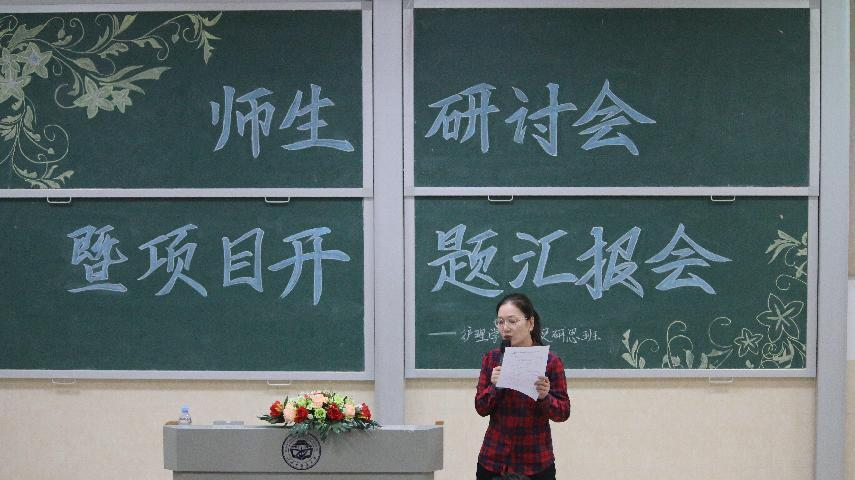 师生研讨会
暨项目开题汇报会
——护理学 研思班